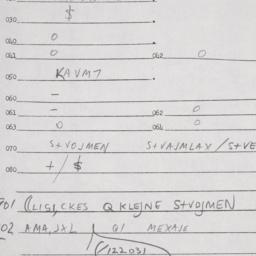 030 $
040 0
041 0 042 0
050 KAVMT
060 –
061 – 062 0
063 0 064 0
070 S+VOJMEN S+VAJMLAX/S+VE
080 +/$
701 Q KLEJNE S+VOJMEN
02 AMA,JXL QI MEXAJE
(/122031